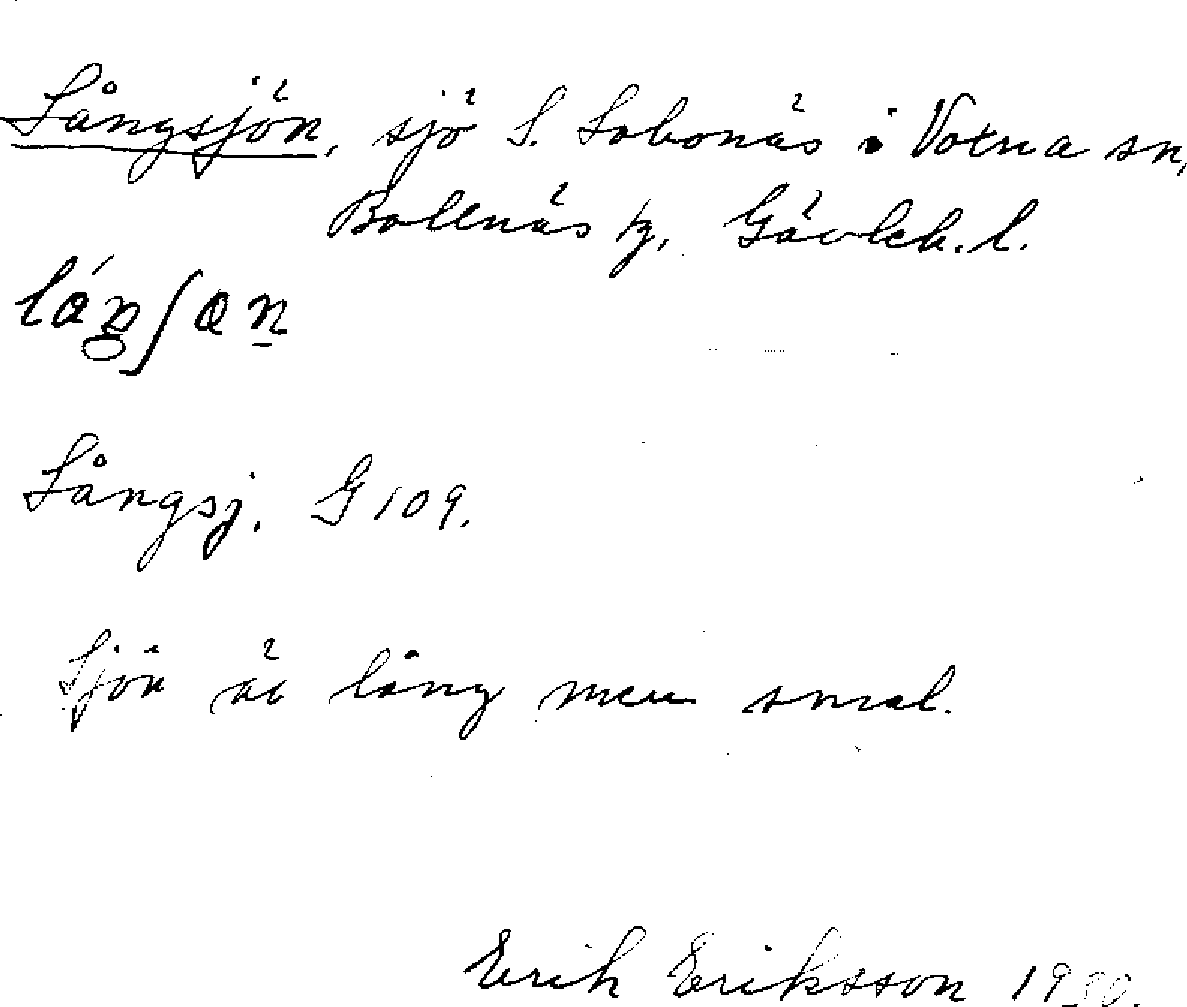 Långsjön, sjö S. Lobonäs i Voxna sn,
Bollnäs tg, Gävleb. l.
Långsj. G 109.
Sjön är lång men smal.
Erik Eriksson 1930.